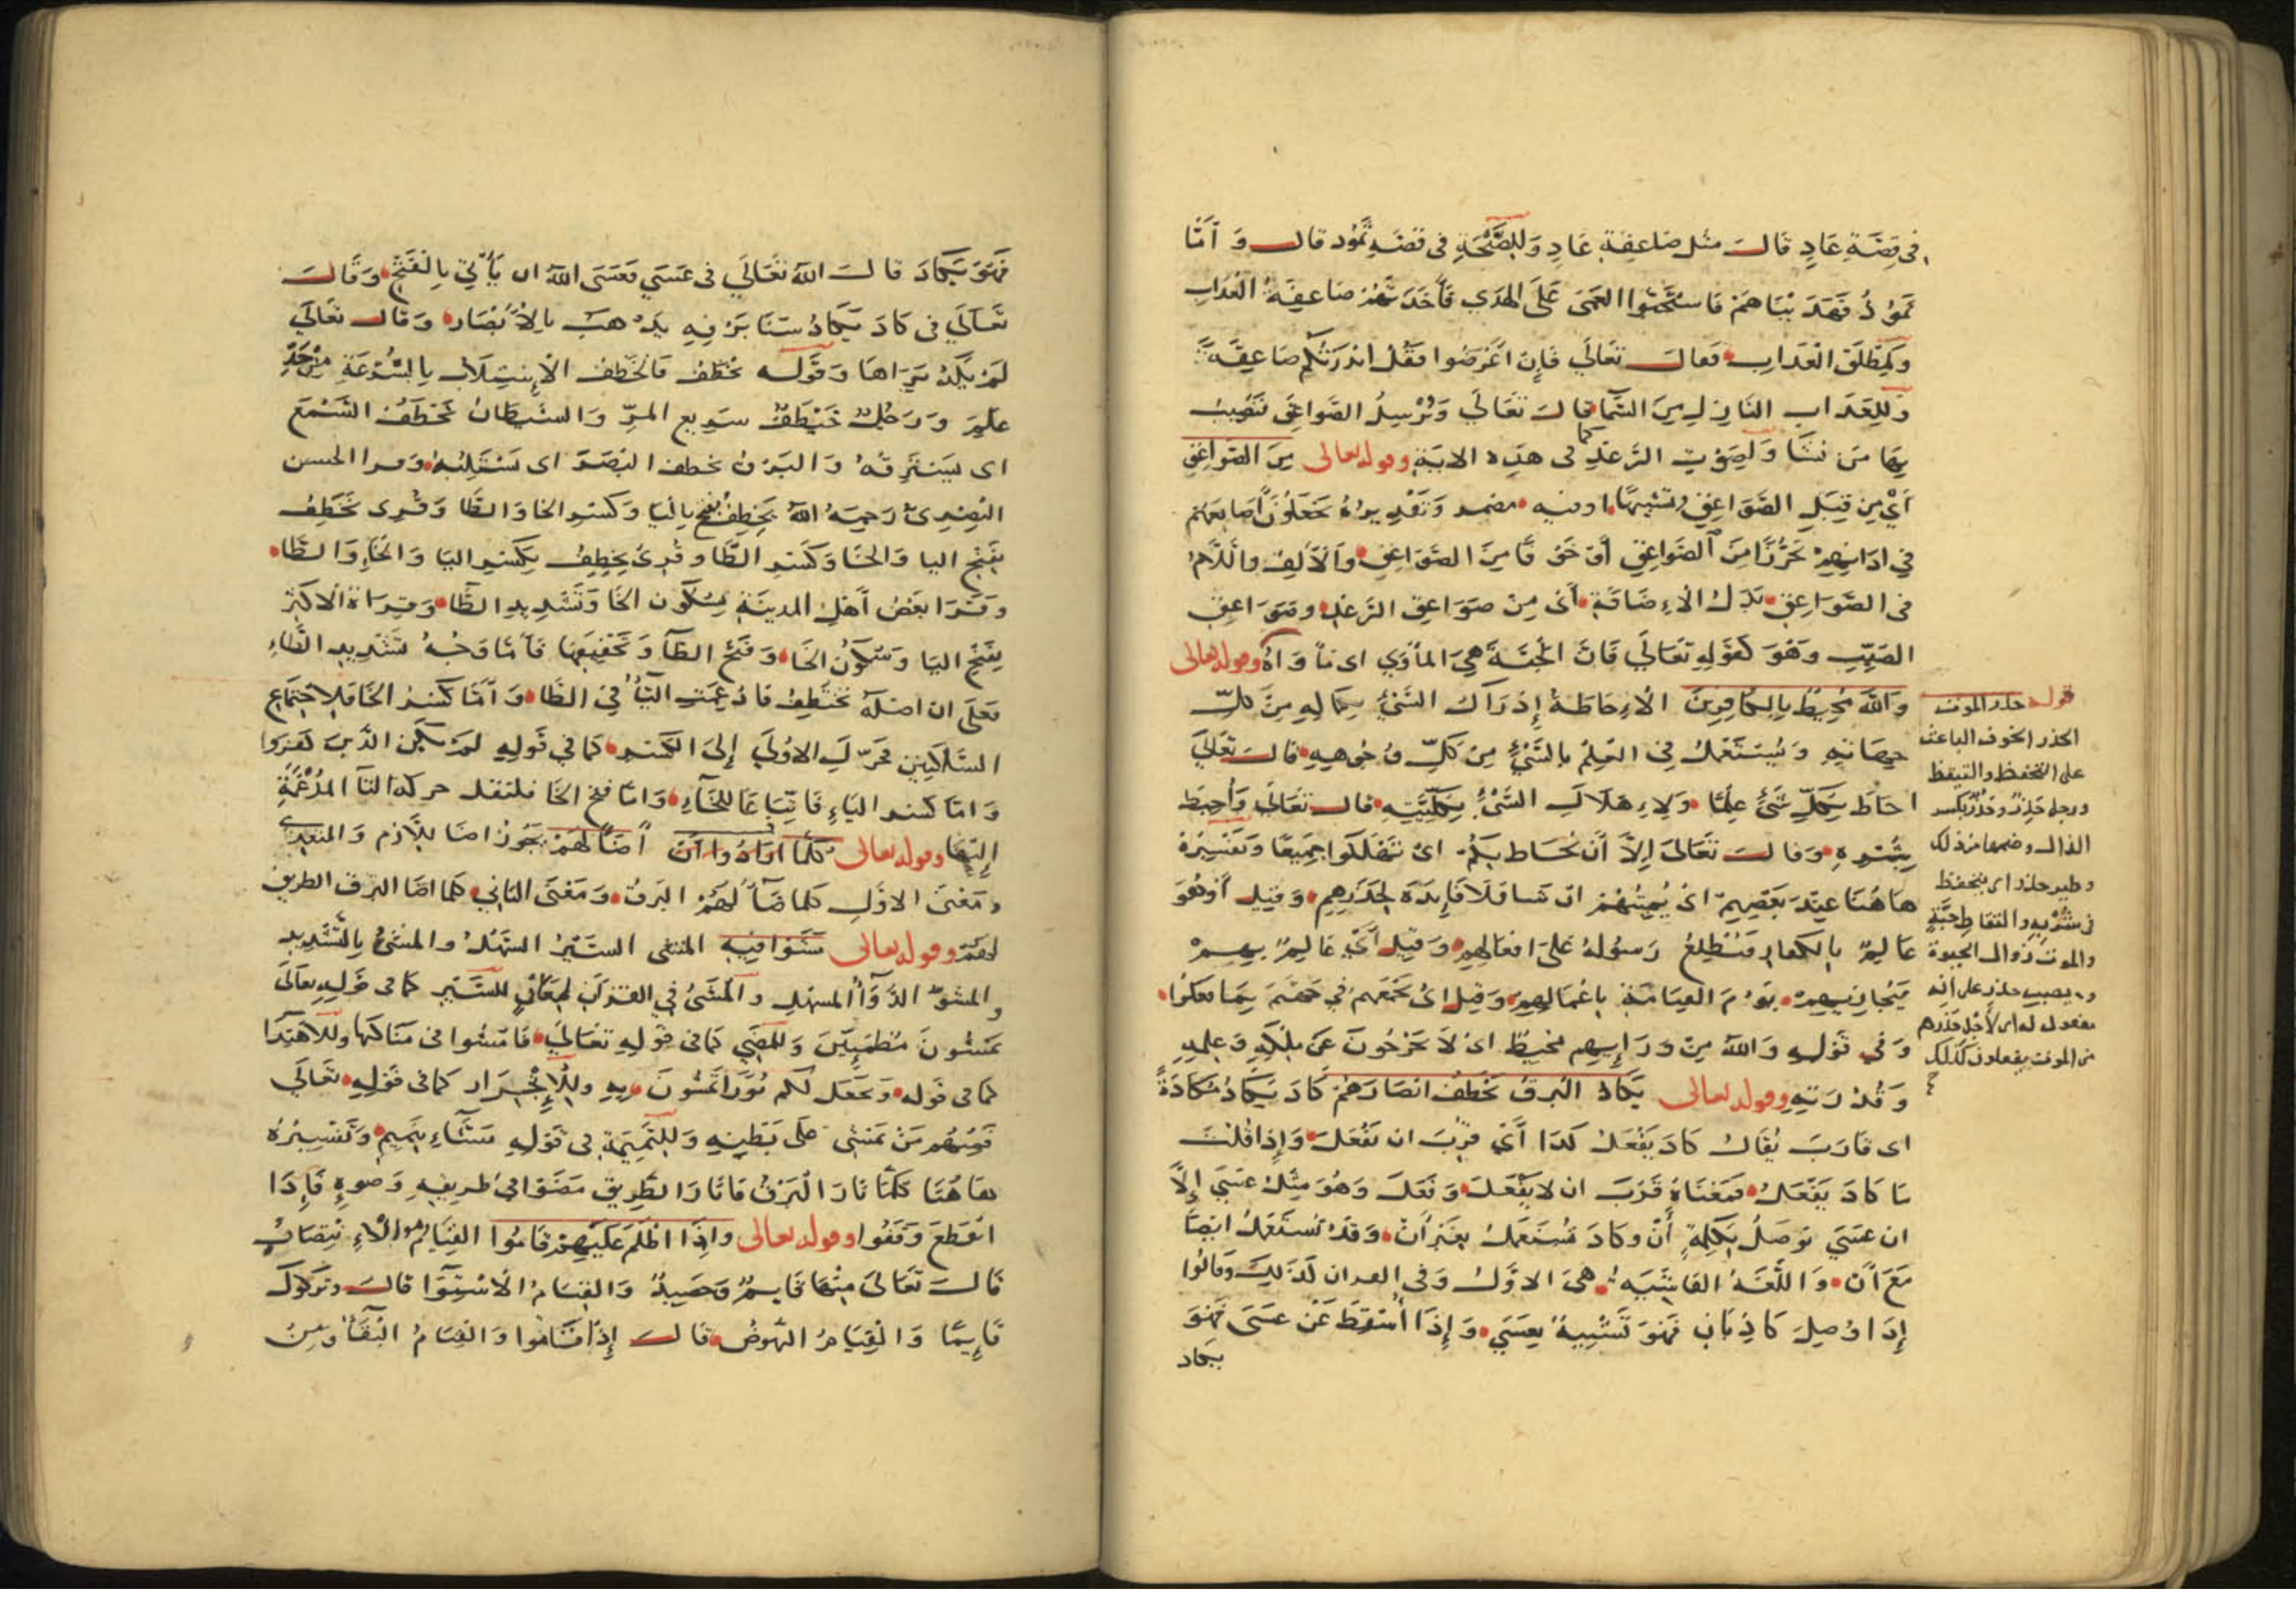 في قصة عاد قال مثل صاعقة عاد وللصيحة في قصة ثمود قال وأما
ثمود فهديناهم فاستحبوا العمى على الهدى فأخذتهم صاعقة العذاب
ولمطلق العذاب فقال تعالى فإن أعرضوا فقل انذرتكم صاعقة
وللعذاب النازل من السما قال تعالى ويرسل الصواعق فيصيب
بها من يشا ولصوت الرعد كما في هذه الاية وقوله تعالى من الصواعق
أي من قبل الصواعق وتنبيها اوفيه مضمر وتقديره يجعلون أصابعهم
في اذانهم تحرزا من الصواعق أو خوفا من الصواعق والألف واللام
في الصواعق بدل الإضافة أي من صواعق الرعد وصواعق
الصيب وهو كقوله تعالى فان الجنة هي المأوى اى مأواه وقوله تعالى
والله محيط بالكافرين الإحاطة إدراك الشيء بكماله من كل
جهاته ويستعمل في العلم بالشيء من كل وجوهه قال تعالى
احاط بكل شيء علما ولإهلاك الشيء بكليته قال تعالى وأحيط
بثمره وقال تعالى إلا أن يحاط بكم اى تهلكوا جميعا وتفسيره
هاهنا عند بعضهم اى يميتهم ان شا فلا فايدة لحذرهم وقيل أوهو
عالم بالكفار فيطلع رسوله على افعالهم وقيل أي عالم بهم
فيجازيهم يوم القيامة باعمالهم وقيل اى يجمعهم في جهنم بما فعلوا
وفي قوله والله من ورايهم محيط اى لا يخرجون عن ملكه وعلمه
وقدرته وقوله تعالى يكاد البرق يخطف ابصارهم كاد يكاد مكادة
اى قارب يقال كاد يفعل كذا أي قرب ان يفعل وإذا قلت
ما كاد يفعل فمعناه قرب ان لا يفعل وفعل وهو مثل عسى إلا
ان عسى توصل بكلمة أن وكاد يستعمل بغير أن وقد تستعمل ايضا
مع أن واللغة الفاشية هي الاول وفي القران لذلك وقالوا
إذا وصل كاد بان فهو تشبيه بعسى وإذا أسقط عن عسى فهو
بيكاد
قوله حذر الموت
الحذر الخوف الباعث
على التحفظ والتيقظ
ورجل حذر وحذر بكسر
الذال وضمها من ذلك
وطير حذر اى يتحفظ
في شربه والتقاط حبه
والموت زوال الحيوة
ونصب حذر على أنه
مفعول له اى لأجل حذرهم
من الموت يفعلون كذلك
فهو بيكاد قال الله تعالى في عسى فعسى الله ان يأتي بالفتح وقال
تعالى في كاد يكاد سنا برقه يذهب بالأبصار وقال تعالى
لم يكد يراها وقوله يخطف فالخطف الإستلاب بالسرعة من حد
علم ورجل خيطف سريع المر والشيطان يخطف السمع
اى يسترقه والبرق يخطف البصر اى يستلبه وقرا الحسن
البصرى رحمه الله يخطف بفتح اليا وكسر الخا والطا وقرى يخطف
بفتح اليا والخا وكسر الطا وقرى يخطف بكسر اليا والخاء والطا
وقرا بعض أهل المدينة بسكون الخا وتشديد الطا وقراة الاكثر
بفتح اليا وسكون الخا وفتح الطا وتخفيفها فأما وجه تشديد الطاء
فعلى ان اصله يختطف فادغمت التا في الطا وأما كسر الخا فلاجتماع
الساكنين فحرك الاولى إلى الكسر كما في قوله لم يكن الذين كفروا
واما كسر الياء فاتباعا للخاء واما فتح الخا فلنقل حركة التا المدغمة
إليها وقوله تعالى كلما أضاء لهم يجوز اضا للازم والمتعدى
ومعنى الاول كلما ضآ لهم البرق ومعنى الثاني كلما اضا البرق الطريق
لهم وقوله تعالى مشوا فيه المشى السير السهل والمشى بالتشديد
والمشو الدواء المسهل والمشى في القرآن لمعان للسير كما في قوله تعالى
يمشون مطمئنين وللمضي كما في قوله تعالى فامشوا في مناكبها وللاهتدا
كما في قوله ويجعل لكم نورا تمشون به وللإنجرار كما في قوله تعالى
فمنهم من يمشى على بطنه وللنميمة في قوله مشاء بنميم وتفسيره
هاهنا كلما نار البرق فانار الطريق مضوا في طريقه وضوءه فإذا
انقطع وقفوا وقوله تعالى وإذا اظلم عليهم قاموا القيام هو الإنتصاب
قال تعالى منها قايم وحصيد والقيام الاستوا قال وتركوك
قايما والقيام النهوض قال إذا قاموا والقيام البقا ومن